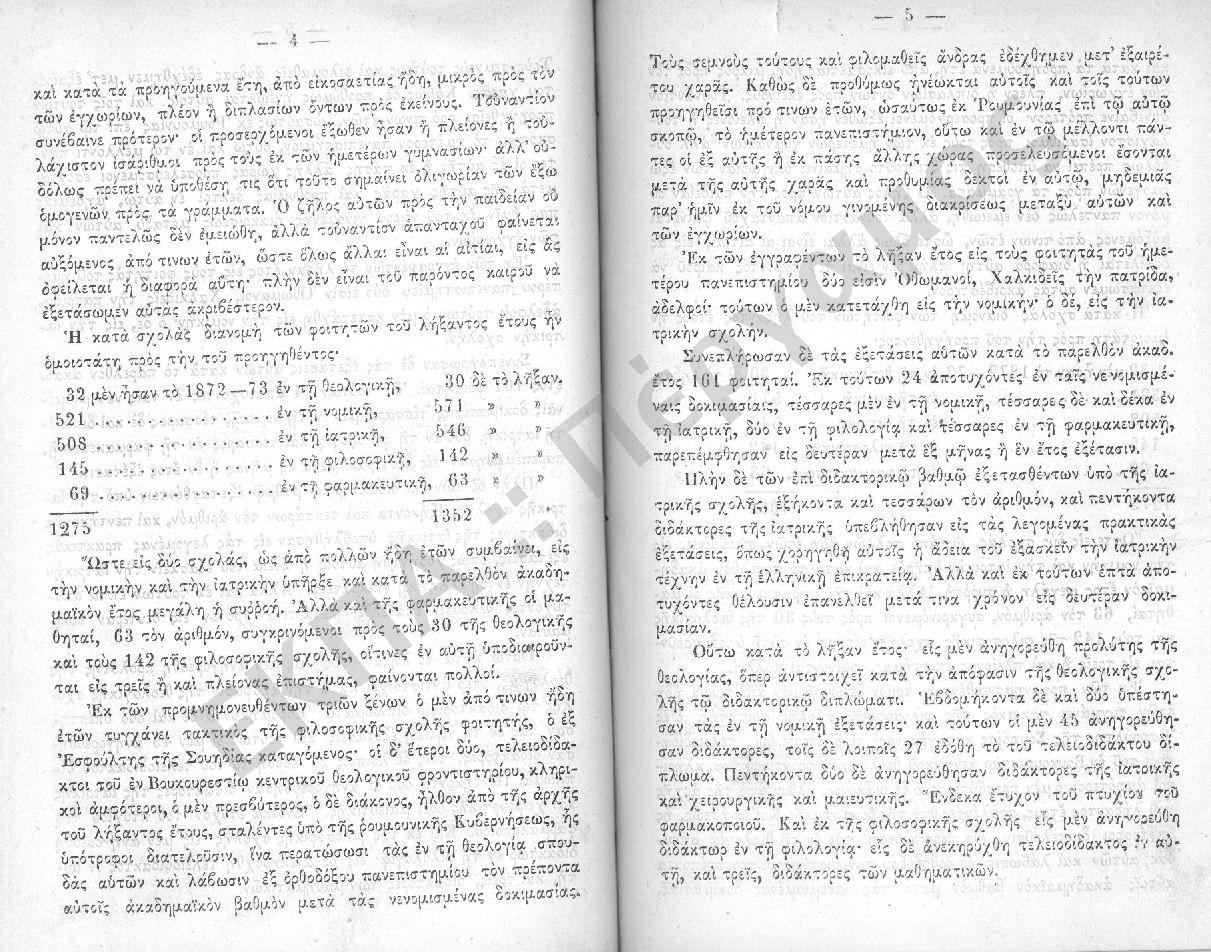 — 4 —
καὶ κατὰ τὰ προηγούμενα ἔτη, ἀπὸ εἰκοσαετίας ἤδη, μικρὸς πρὸς τὸν
τῶν ἐγχωρίων, πλέον ἢ διπλασίων ὄντων πρὸς ἐκείνους. Τοὐναντίον
συνέβαινε πρότερον· οἱ προσερχόμενοι ἔξωθεν ἦσαν ἢ πλείονες ἢ τοὐ-
λάχιστον ἰσάριθμοι πρὸς τοὺς ἐκ τῶν ἡμετέρων γυμνασίων· ἀλλ' οὐ-
δόλως πρέπει νὰ ὑποθέσῃ τις ὅτι τοῦτο σημαίνει ὀλιγωρίαν τῶν ἔξω
ὁμογενῶν πρὸς τὰ γράμματα. Ὁ ζῆλος αὐτῶν πρὸς τὴν παιδείαν οὐ
μόνον παντελῶς δὲν ἐμειώθη, ἀλλὰ τοὐναντίον ἁπανταχοῦ φαίνεται
αὐξόμενος ἀπό τινων ἐτῶν, ὥστε ὅλως ἄλλαι εἶναι αἱ αἰτίαι, εἰς ἃς
ὀφείλεται ἡ διαφορὰ αὕτη· πλὴν δὲν εἶναι τοῦ παρόντος καιροῦ νὰ
ἐξετάσωμεν αὐτὰς ἀκριβέστερον.
Ἡ κατὰ σχολὰς διανομὴ τῶν φοιτητῶν τοῦ λήξαντος ἔτους ἦν
ὁμοιοτάτη πρὸς τὴν τοῦ προηγηθέντος·
32 μὲν ἦσαν τὸ 1872—73 ἐν τῇ θεολογικῇ, 30 δὲ τὸ λῆξαν.
521 . . . . . . . . . . . . . . ἐν τῇ νομικῇ, 571 » »
508 . . . . . . . . . . . . . . ἐν τῇ ἰατρικῇ, 546 » »
145 . . . . . . . . . . . . . . ἐν τῇ φιλοσοφικῇ, 142 » »
69 . . . . . . . . . . . . . . ἐν τῇ φαρμακευτικῇ, 63 » »
1275 1352
Ὥστε εἰς δύο σχολάς, ὡς ἀπὸ πολλῶν ἤδη ἐτῶν συμβαίνει, εἰς
τὴν νομικὴν καὶ τὴν ἰατρικὴν ὑπῆρξε καὶ κατὰ τὸ παρελθὸν ἀκαδη-
μαϊκὸν ἔτος μεγάλη ἡ συῤῥοή. Ἀλλὰ καὶ τῆς φαρμακευτικῆς οἱ μα-
θηταί, 63 τὸν ἀριθμόν, συγκρινόμενοι πρὸς τοὺς 30 τῆς θεολογικῆς
καὶ τοὺς 142 τῆς φιλοσοφικῆς σχολῆς, οἵτινες ἐν αὐτῇ ὑποδιαιροῦν-
ται εἰς τρεῖς ἢ καὶ πλείονας ἐπιστήμας, φαίνονται πολλοί.
Ἐκ τῶν προμνημονευθέντων τριῶν ξένων ὁ μὲν ἀπό τινων ἤδη
ἐτῶν τυγχάνει τακτικὸς τῆς φιλοσοφικῆς σχολῆς φοιτητής, ὁ ἐξ
Ἐσφούλτης τῆς Σουηδίας καταγόμενος· οἱ δ' ἕτεροι δύο, τελειοδίδα-
κτοι τοῦ ἐν Βουκουρεστίῳ κεντρικοῦ θεολογικοῦ φροντιστηρίου, κληρι-
κοὶ ἀμφότεροι, ὁ μὲν πρεσβύτερος, ὁ δὲ διάκονος, ἦλθον ἀπὸ τῆς ἀρχῆς
τοῦ λήξαντος ἔτους, σταλέντες ὑπὸ τῆς ῥουμουνικῆς Κυβερνήσεως, ἧς
ὑπότροφοι διατελοῦσιν, ἵνα περατώσωσι τὰς ἐν τῇ θεολογίᾳ σπου-
δὰς αὐτῶν καὶ λάβωσιν ἐξ ὀρθοδόξου πανεπιστημίου τὸν πρέποντα
αὐτοῖς ἀκαδημαϊκὸν βαθμὸν μετὰ τὰς νενομισμένας δοκιμασίας.
— 5 —
Τοὺς σεμνοὺς τούτους καὶ φιλομαθεῖς ἄνδρας ἐδέχθημεν μετ' ἐξαιρέ-
του χαρᾶς. Καθὼς δὲ προθύμως ἠνέωκται αὐτοῖς καὶ τοῖς τούτων
προηγηθεῖσι πρό τινων ἐτῶν, ὡσαύτως ἐκ Ῥουμουνίας ἐπὶ τῷ αὐτῷ
σκοπῷ, τὸ ἡμέτερον πανεπιστήμιον, οὕτω καὶ ἐν τῷ μέλλοντι πάν-
τες οἱ ἐξ αὐτῆς ἢ ἐκ πάσης ἄλλης χώρας προσελευσόμενοι ἔσονται
μετὰ τῆς αὐτῆς χαρᾶς καὶ προθυμίας δεκτοὶ ἐν αὐτῷ, μηδεμιᾶς
παρ' ἡμῖν ἐκ τοῦ νόμου γινομένης διακρίσεως μεταξὺ αὐτῶν καὶ
τῶν ἐγχωρίων.
Ἐκ τῶν ἐγγραφέντων τὸ λῆξαν ἔτος εἰς τοὺς φοιτητὰς τοῦ ἡμε-
τέρου πανεπιστημίου δύο εἰσὶν Ὀθωμανοί, Χαλκιδεῖς τὴν πατρίδα,
ἀδελφοί· τούτων ὁ μὲν κατετάχθη εἰς τὴν νομικήν· ὁ δέ, εἰς τὴν ἰα-
τρικὴν σχολήν.
Συνεπλήρωσαν δὲ τὰς ἐξετάσεις αὐτῶν κατὰ τὸ παρελθὸν ἀκαδ.
ἔτος 161 φοιτηταί. Ἐκ τούτων 24 ἀποτυχόντες ἐν ταῖς νενομισμέ-
ναις δοκιμασίαις, τέσσαρες μὲν ἐν τῇ νομικῇ, τέσσαρες δὲ καὶ δέκα ἐν
τῇ ἰατρικῇ, δύο ἐν τῇ φιλολογίᾳ καὶ τέσσαρες ἐν τῇ φαρμακευτικῇ,
παρεπέμφθησαν εἰς δευτέραν μετὰ ἓξ μῆνας ἢ ἓν ἔτος ἐξέτασιν.
Πλὴν δὲ τῶν ἐπὶ διδακτορικῷ βαθμῷ ἐξετασθέντων ὑπὸ τῆς ἰα-
τρικῆς σχολῆς, ἑξήκοντα καὶ τεσσάρων τὸν ἀριθμόν, καὶ πεντήκοντα
διδάκτορες τῆς ἰατρικῆς ὑπεβλήθησαν εἰς τὰς λεγομένας πρακτικὰς
ἐξετάσεις, ὅπως χορηγηθῇ αὐτοῖς ἡ ἄδεια τοῦ ἐξασκεῖν τὴν ἰατρικὴν
τέχνην ἐν τῇ ἑλληνικῇ ἐπικρατείᾳ. Ἀλλὰ καὶ ἐκ τούτων ἑπτὰ ἀπο-
τυχόντες θέλουσιν ἐπανελθεῖ μετά τινα χρόνον εἰς δευτέραν δοκι-
μασίαν.
Οὕτω κατὰ τὸ λῆξαν ἔτος· εἷς μὲν ἀνηγορεύθη προλύτης τῆς
θεολογίας, ὅπερ ἀντιστοιχεῖ κατὰ τὴν ἀπόφασιν τῆς θεολογικῆς σχο-
λῆς τῷ διδακτορικῷ διπλώματι. Ἑβδομήκοντα δὲ καὶ δύο ὑπέστη-
σαν τὰς ἐν τῇ νομικῇ ἐξετάσεις· καὶ τούτων οἱ μὲν 45 ἀνηγορεύθη-
σαν διδάκτορες, τοῖς δὲ λοιποῖς 27 ἐδόθη τὸ τοῦ τελειοδιδάκτου δί-
πλωμα. Πεντήκοντα δύο δὲ ἀνηγορεύθησαν διδάκτορες τῆς ἰατρικῆς
καὶ χειρουργικῆς καὶ μαιευτικῆς. Ἕνδεκα ἔτυχον τοῦ πτυχίου τοῦ
φαρμακοποιοῦ. Καὶ ἐκ τῆς φιλοσοφικῆς σχολῆς εἷς μὲν ἀνηγορεύθη
διδάκτωρ ἐν τῇ φιλολογίᾳ· εἷς δὲ ἀνεκηρύχθη τελειοδίδακτος ἐν αὐ-
τῇ, καὶ τρεῖς, διδάκτορες τῶν μαθηματικῶν.